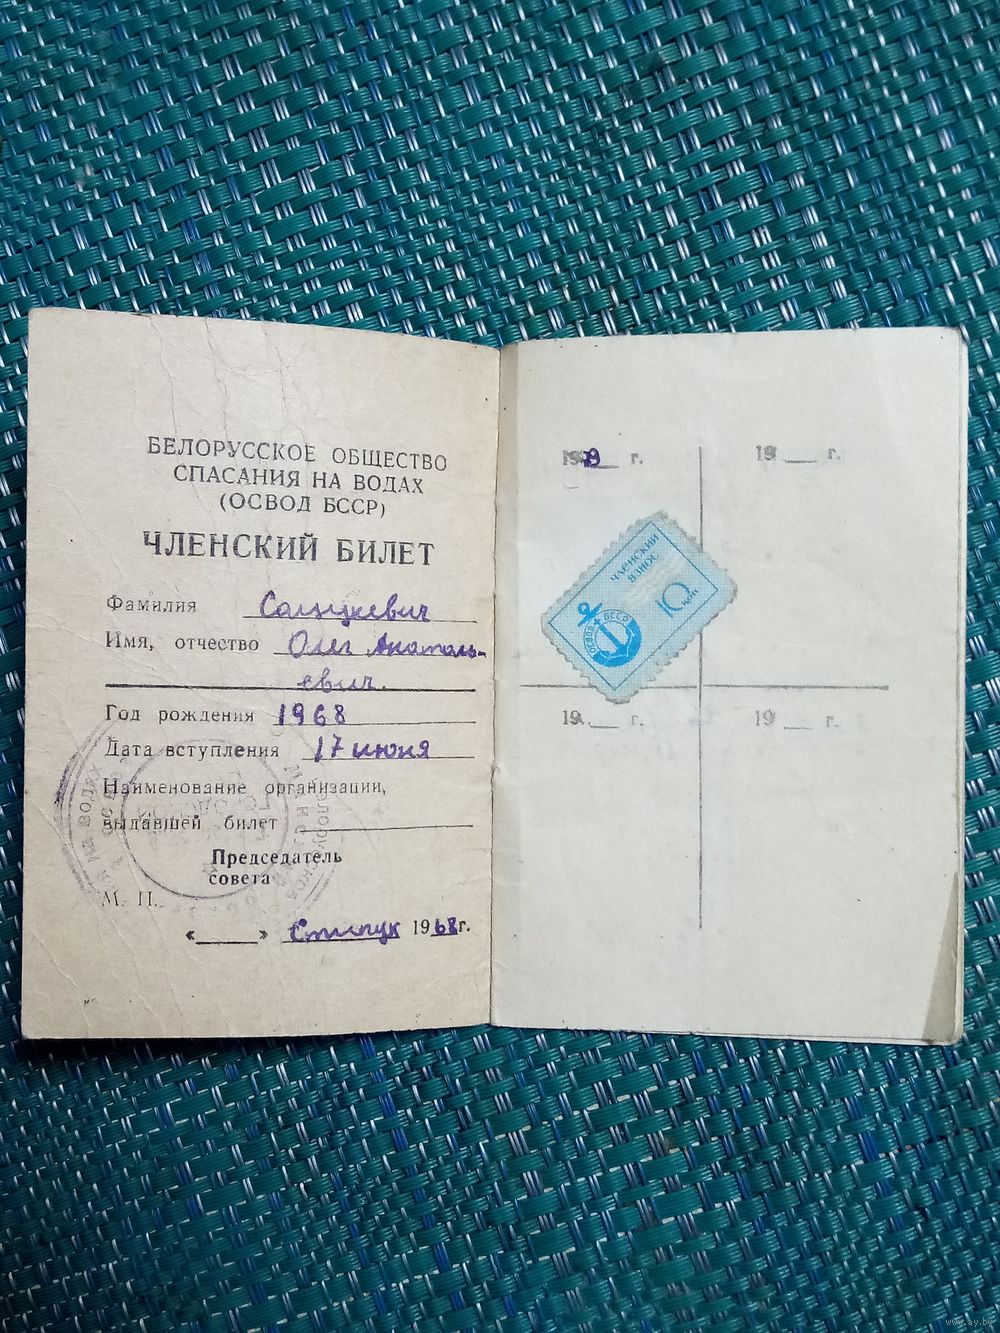 БЕЛОРУССКОЕ ОБЩЕСТВО
СПАСАНИЯ НА ВОДАХ
(ОСВОД БССР)
ЧЛЕНСКИЙ БИЛЕТ
Фамилия
Имя, отчество Олег Анатоль-
евич.
Год рождения 1968
Дата вступления 17 июня
Наименование организации,
выдавшей билет
Председатель
совета
М. П.
«____» 1968г.
19 г.
19 __ г.
ЧЛЕНСКИЙ
ВЗНОС
10 коп
ОСВОД БССР
19 __ г.
19 __ г.
www.ay.by